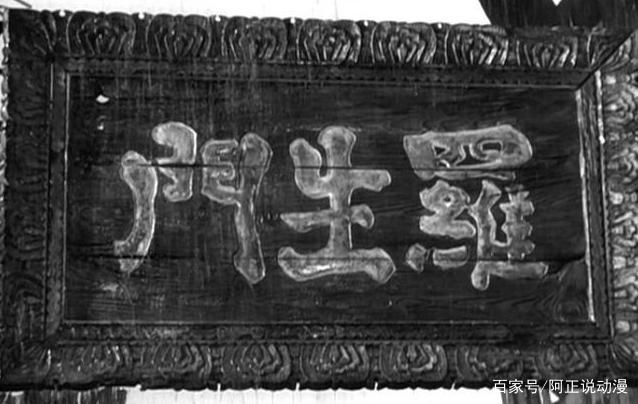 羅生門
百家号/阿正说动漫